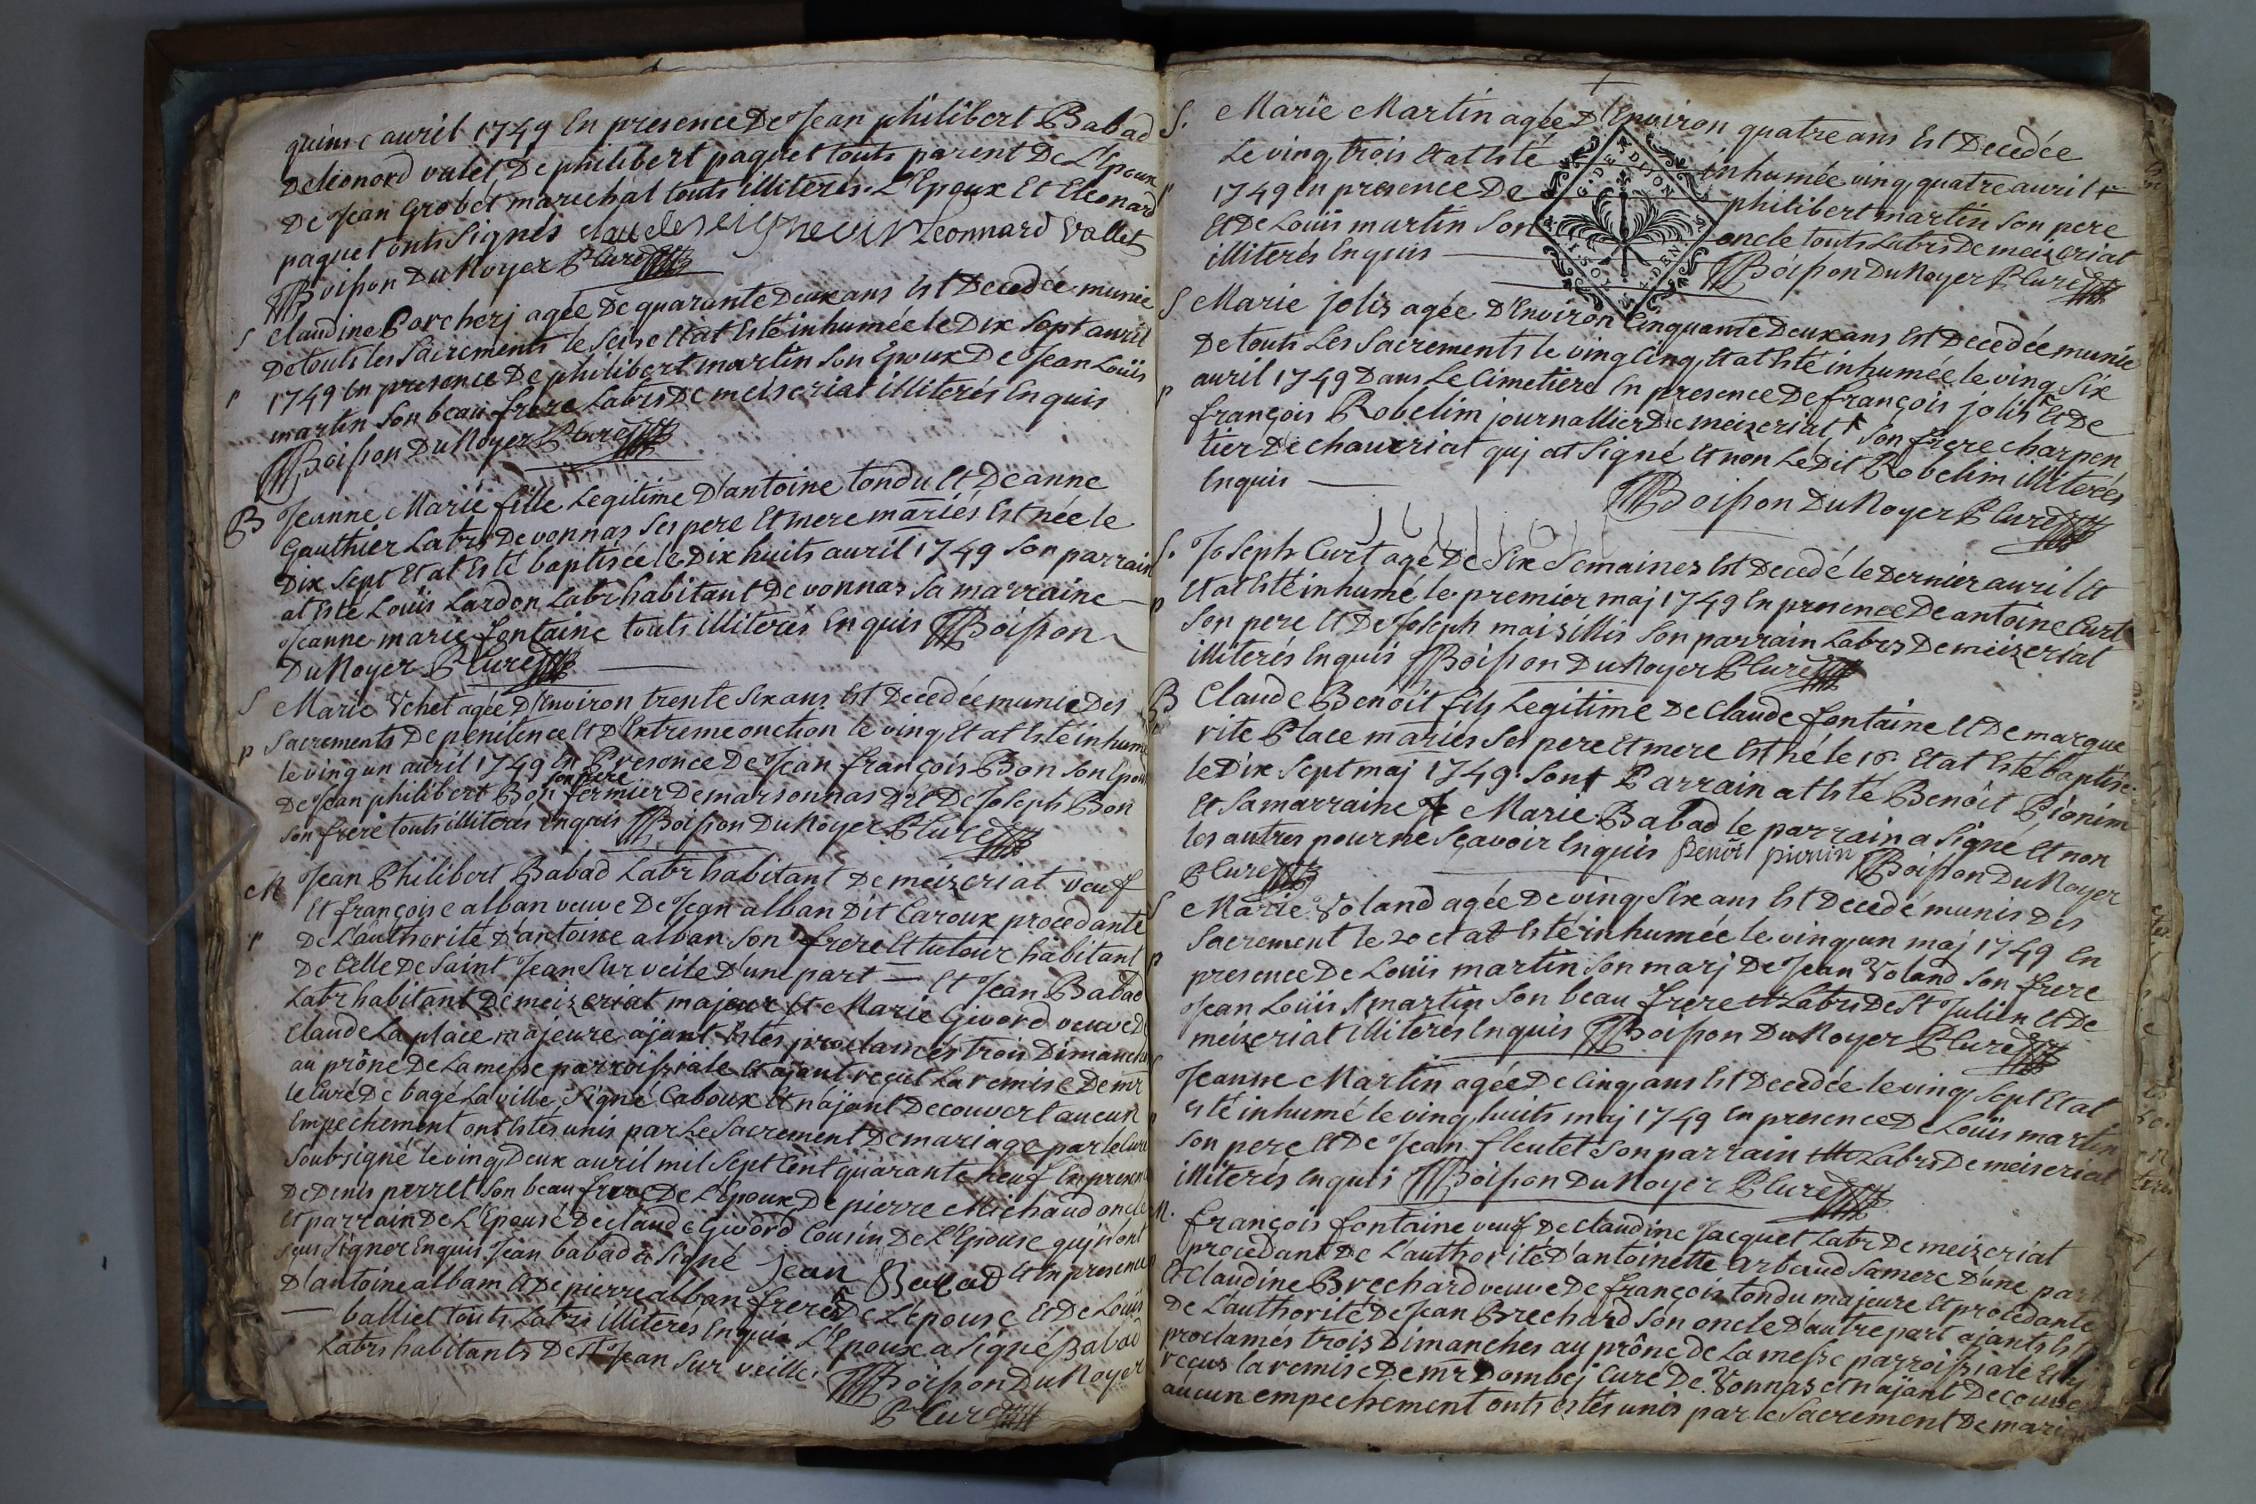 quinse avril 1749 En presence De Jean philibert Babad
De leonord valet De philibert paquet touts parent De L'Epoux
De Jean Grobet marechal touts illiterés. L'Epoux Et Eleonard
paquet onts Signés Leonnard Vallet
Boisson Du Noyer P Curé
S Claudine Porcherj agée De quarante Deux ans Est Decedée munie
De touts les Sacrements le seise Et at Esté inhumée le Dix Sept avril
p 1749 En presence De philibert martin Son Epoux De Jean Loüis
martin Son beau frere Labrs De meiseriat illiterés Enquis
Boisson Du Noyer P Curé
B Jeanne Marie fille Legitime D'antoine tondu Et De anne
Gauthier Labrs De vonnas Ses pere Et mere mariés Est née le
Dix Sept Et at Esté baptisée le Dix huits avril 1749 Son parrain
at Esté Louis Lardon Labr habitant De vonnas Sa marraine
Jeanne marie fontaine touts illiterés Enquis Boisson
Du Noyer P Curé
S Marie Vchet agée D'Environ trente Six ans Est Decedée munie Des
p Sacrements De penitence Et D'Extreme onction le ving Et at Esté inhumé
le ving un avril 1749 En Presence De Jean françois Bon Son Epoux
De Jean philibert Bon son pere fermier De marsonnas Et De Joseph Bon
Son frere touts illiteres Enquis Boisson Du Noyer P Curé
M Jean Philibert Babad Labr habitant De meizeriat veuf
Et françoise alban veuve De Jean alban Dit Caroux procedante
p De L'authorité D'antoine alban Son frere Et tuteur habitant
De Celle De Saint Jean Sur veile D'une part — Et Jean Babad
Labr habitant De meizeriat majeur Et Marie Gword veuve De
Claude La place majeure ajant Estés proclamés trois Dimanches
au prône De La messe parroissiale Et ajant reçut La remise De mr
le Curé De bagé La ville Signé Caboux Et n'ajant Decouvert aucun
Empechement ont Estés unis par Le Sacrement De mariage par le Curé
Soubsigné le ving Deux avril mil Sept Cent quarante neuf En presence
De Denis perret Son beau frere De L'Epoux De pierre Michaud oncle
Et parrain De L'Epouse De Claude Gword Cousin De L'Epouse quj n'ont
sçus Signer Enquis Jean babad a Signé Jean Babad Et En presence
D'antoine albam Et De pierre alban freres De L'épouse Et De Loüis
— balliet touts Labrs illiteres Enquis L'Epoux a Signé Babad
Labrs habitants De St Jean Sur veille. Boisson Du Noyer
P Curé
S. Marie Martin agée D'Environ quatre ans Est Decedée
Le ving trois Et at Esté inhumée ving quatre avril
p 1749 En presence De philibert martin Son pere
Et De Loüis martin Son oncle touts Labrs De meizeriat
illiterés Enquis — Boisson Du Noyer P Curé
G. DE DIJON
S Marie jolis agée D'Environ Cinquante Deux ans Est Decedée munie
De touts Les Sacrements le ving Cinq Et at Esté inhumée le ving Six
avril 1749 Dans Le Cimetiere En presence De françois jolis Et De
p françois Robelim journallier De meizeriat Son frere charpen
tier De chaveriat quj at Signé Et non Le Dit Robelim illiterés
Enquis — Boisson Du Noyer P Curé
S. Joseph Curt agé De Six Semaines Est Decedé le Dernier avril Et
Et at Esté inhumé le premier maj 1749 En presence De antoine Curt
p Son pere Et De Joseph maizillis Son parrain Labrs De meizeriat
illiterés Enquis Boisson Du Noyer P Curé
B Claude Benoît fils Legitime De Claude fontaine Et De margue
rite Place mariés Ses pere Et mere Est né le 16 Et at Esté baptisé
le Dix Sept maj 1749. Son Parrain at Esté Benoît Pionim
Et Sa marraine Marie Babad le parrain a Signé Et non
les autres pour ne Sçavoir Enquis Benoît pionin Boisson Du Noyer
P Curé
S Marie Voland agée De ving Six ans Est Decedé munis Des
Sacrement le 20 et at Esté inhumée le ving un maj 1749 En
p presence De Loüis martin Son marj De Jean Voland Son frere
Jean Loüis martin Son beau frere Labrs De St Julien Et De
meizeriat illiterés Enquis Boisson Du Noyer P Curé
Jeanne Martin agée De Cinq ans Est Decedée le ving Sept Et at
Esté inhumé le ving huits maj 1749 En presence De Loüis martin
Son pere Et De Jean fleutet Son parrain Labrs De meiseriat
illiterés Enquis Boisson Du Noyer P Curé
M. françois fontaine veuf De Claudine Jacquet Labr De meizeriat
procedant De L'authorité D'antoinette Arbaud Sa mere D'une part
Et Claudine Brechard veuve De françois tondu majeure Et procedante
De L'authorité De Jean Brechard Son oncle D'autre part ajants Esté
proclamés trois Dimanches au prône de La messe parroissiale Et
reçus la remise De mr Dombej Curé De Vonnas et n'ajant Decouvert
aucun empechement onts estés unis par le Sacrement De mari